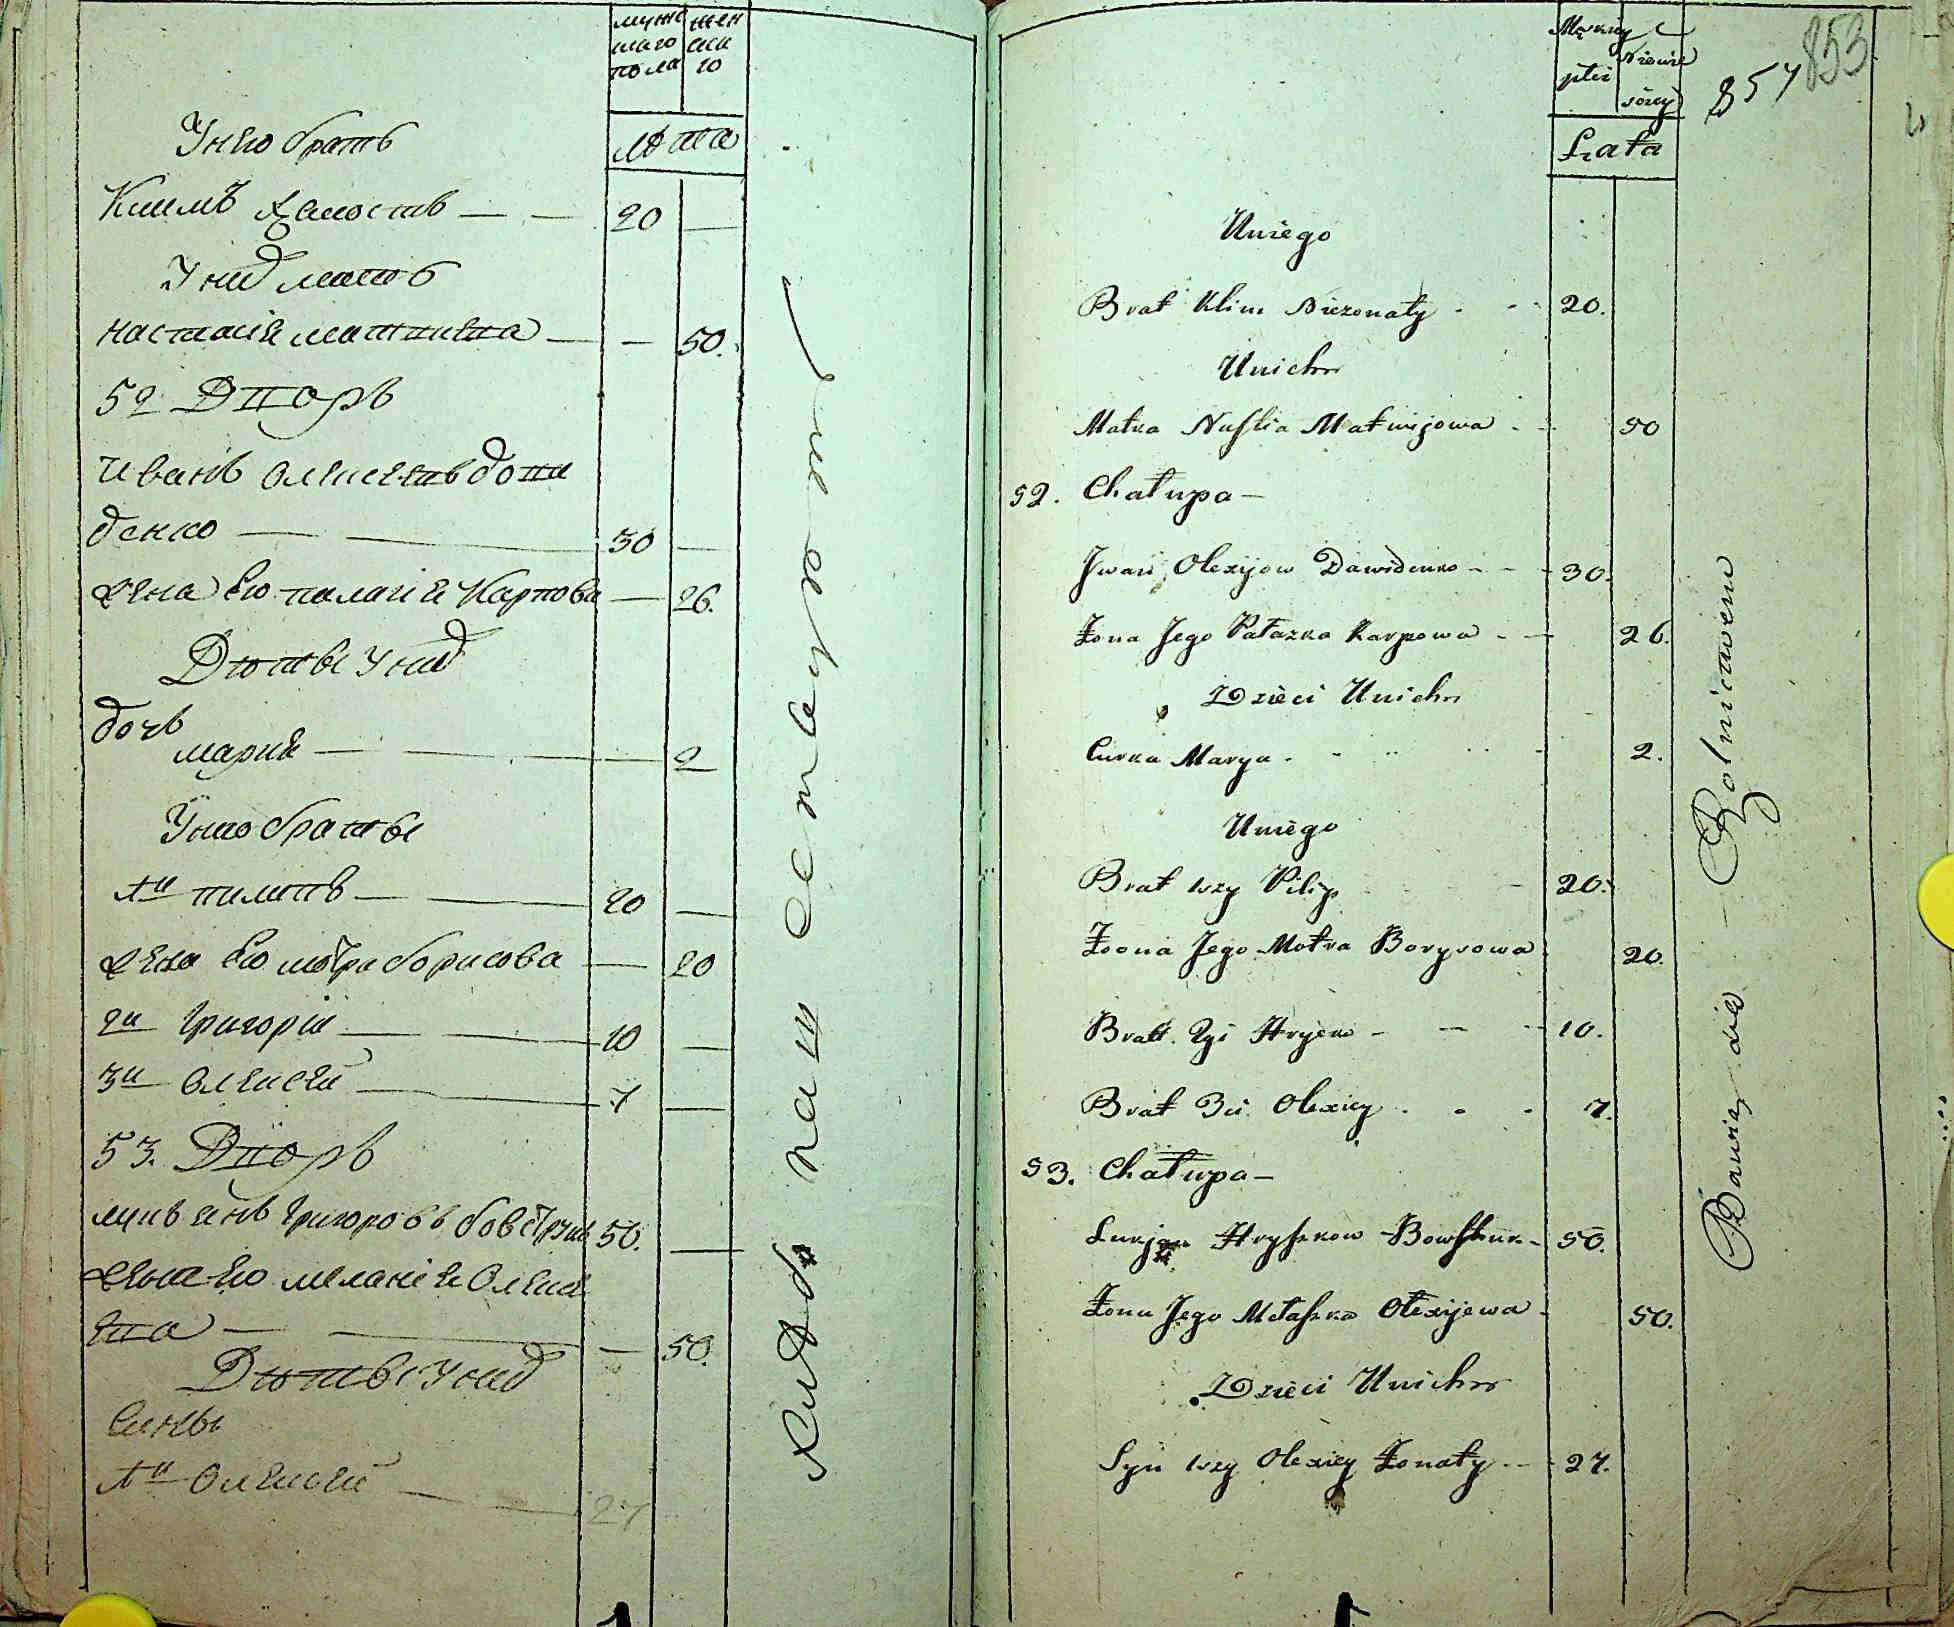 мужс
каго
пола
жен
ска
го
лѣта
У него братъ
Климъ холостъ — — 20 —
У них мать
настасия матвиева — — 50.
52 Дворъ
иванъ олексеевъ дави
денко — — 30 —
жена его палагия Карпова — 26.
Дѣты у них
дочь
мария — — — 2
У него браты
1й пилипъ — — 20 —
жена его мотра борисова — 20
2й григорій — — 10 —
3й олексей — — 7 —
53. Дворъ
лукъянъ григоровъ бовстунъ 50. —
жена его мелания олексе
ева — — — 50.
Дѣты у них
Сины
1й олексей — — 27
Męzkiey
płci
Niewie
sciey
Lata
857
853
Uniego
Brat Klim Niezonaty 20.
Unich
Matka Nastia Matwijowa 50
52. Chałupa —
Jwan Olexijow Dawidenko 30.
Żona Jego Pałazka Karpowa 26.
Dzieci Unich
Curka Marya 2.
Uniego
Brat 1szy Pilip 20.
Żoona Jego Motra Borysowa 20.
Bratt. 2gi Hryćko 10.
Brat 3ci Olexiey 7.
53. Chałupa —
Lukjan Hryhorow Bowstun 50.
Żona Jego Mełaszka Olexijewa 50.
Dzieci Unich
Syn 1szy Olexiey Żonaty 27.
Bawią się — Rolnictwem